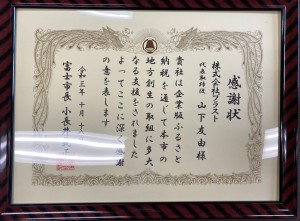 感謝状
株式会社プラスト
代表取締役 山下友由様
貴社は企業版ふるさと
納税を通じて本市の
地方創生の取組に多大
なる支援をされました
よってここに深く感謝
の意を表します
令和三年十月十
富士市長 小長井